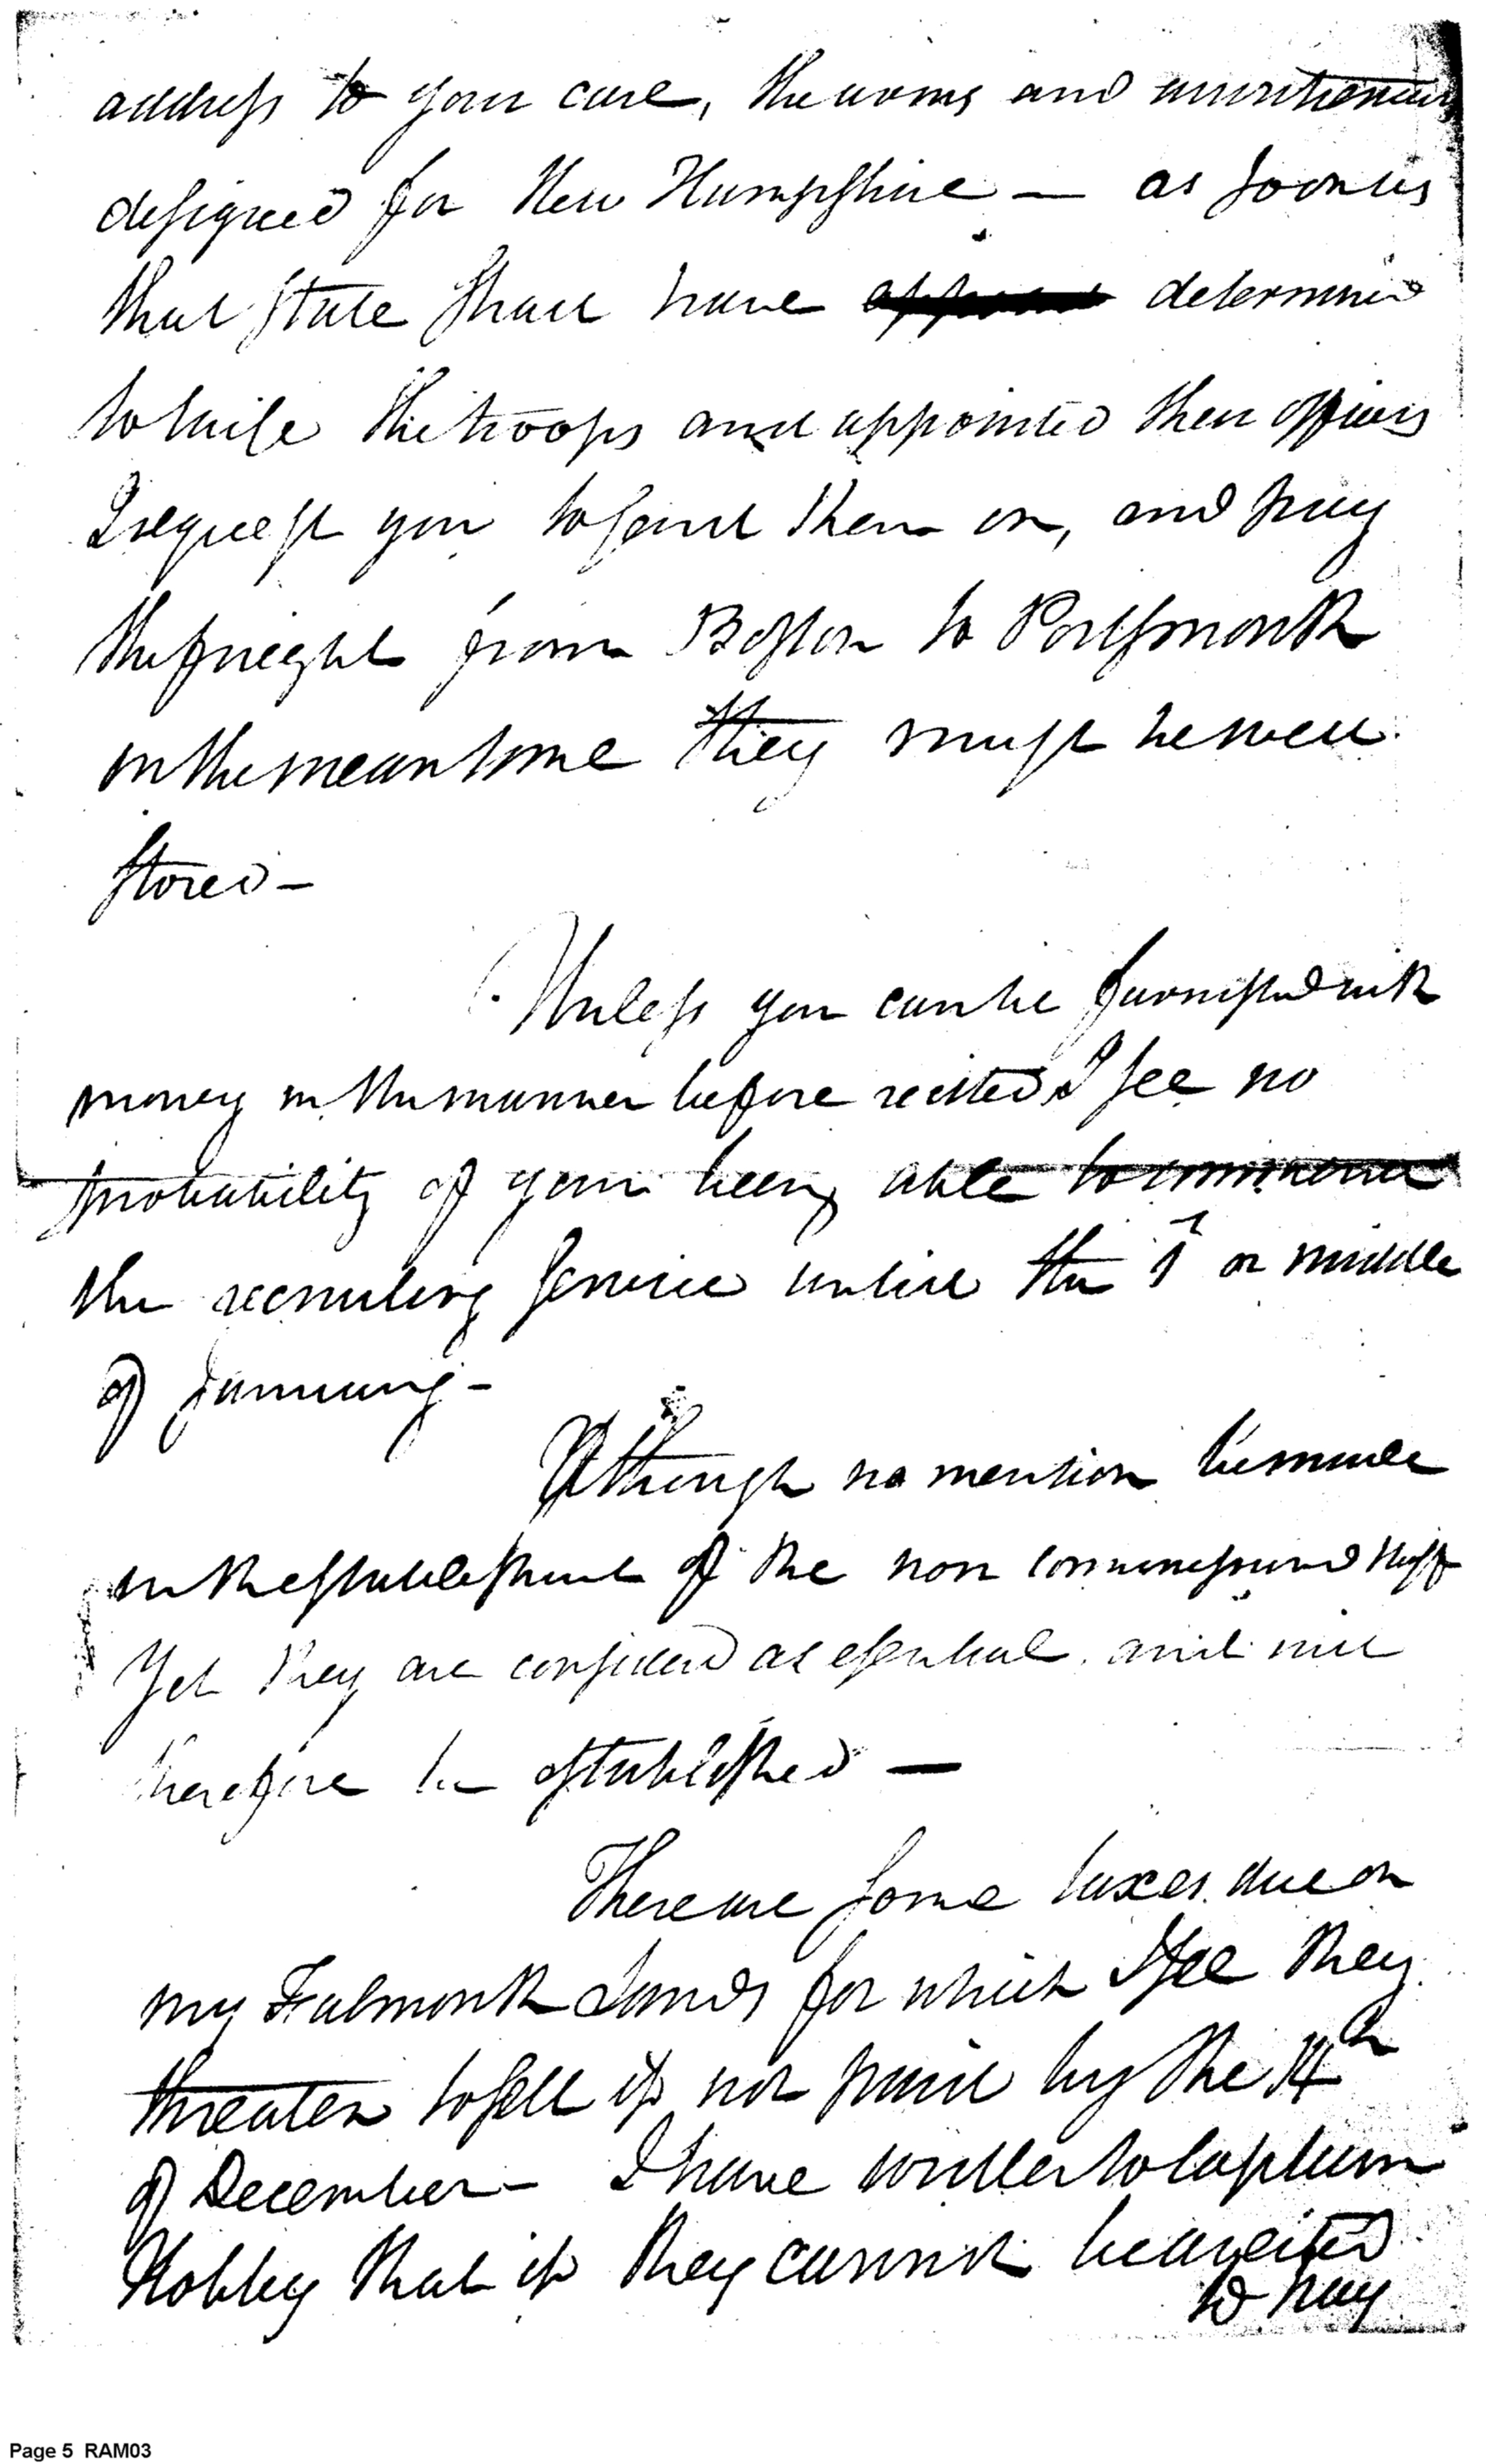 address to your care, the arms and amunition
designed for New Hampshire — as soon as
that state shall have determined
to raise the troops and appointed their officers
I request you to send them on, and pay
the freight from Boston to Portsmouth
in the mean time they must be well
stored —
Unless you can be furnished with
money in the manner before recited I see no
probability of your being able to commence
the recruiting service untill the 1st or middle
of January —
Although no mention be made
in the establishment of the non commissioned staff
Yet they are considered as essential and will
therefore be established —
There are some taxes due on
my Falmouth Lands for which I see they
threaten to sell if not paid by the 14th
of December — I have written to Captain
Hobby that if they cannot be
to pay
Page 5 RAM03